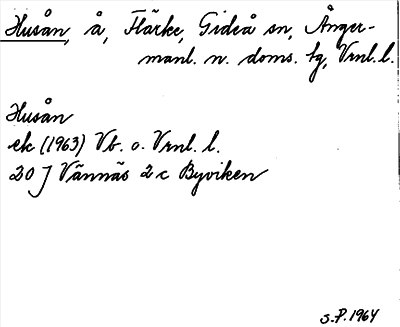 Husån, å, Flärke, Gideå sn, Ånger-
manl. n. doms. tg, Vrnl. l.
Husån
ek (1963) Vb. o. Vrnl. l.
20 J Vännäs 2 c Byviken
S.P. 1964